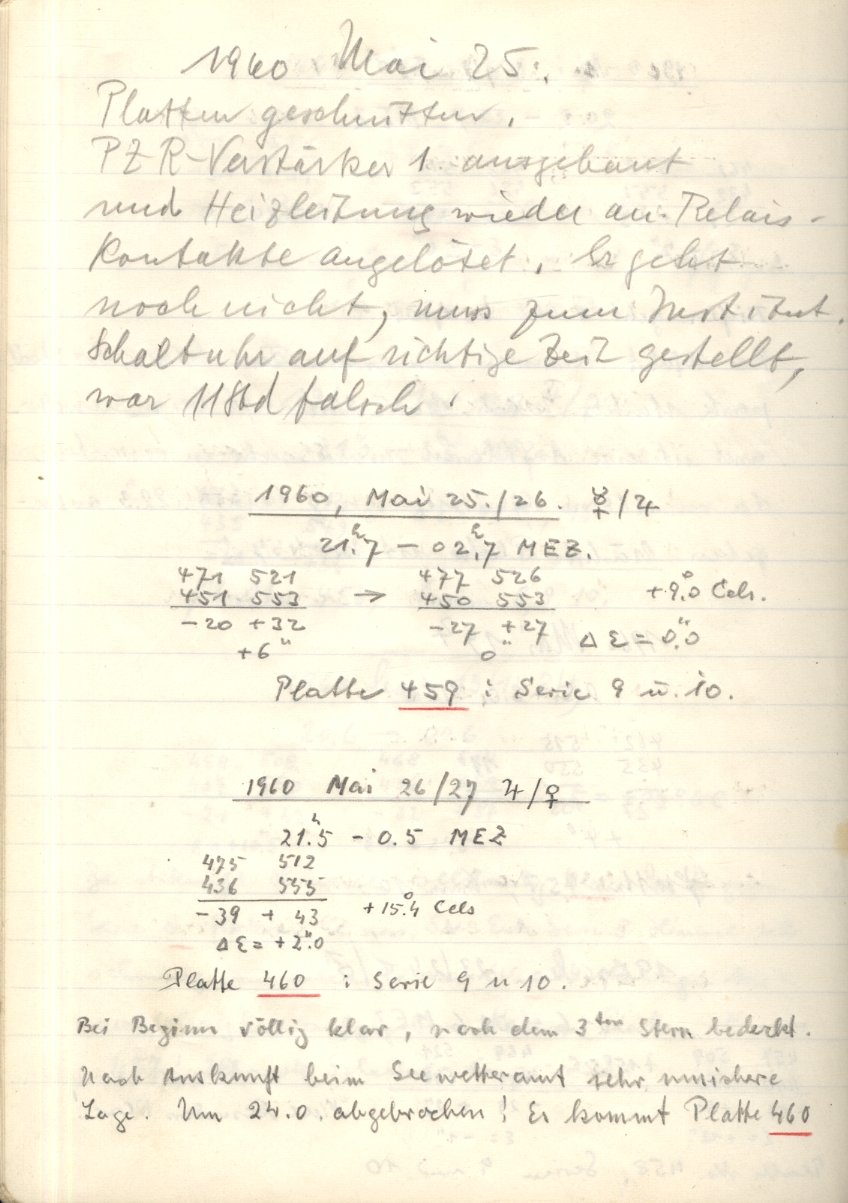 1960 Mai 25.
Platten geschnitten.
PZR-Verstärker 1. ausgebaut
und Heizleitung wieder an Relais-
Kontakte angelötet. Er geht
noch nicht, muss zum Institut.
Schaltuhr auf richtige Zeit gestellt,
war 11 Std falsch.
1960, Mai 25./26. ☿/♃
21.ʰ7 – 02.ʰ7 MEZ.
471 521 477 526
451 553 → 450 553 +9.°0 Cels.
-20 +32 -27 +27 Δε = 0."0
+6" 0"
Platte 459 : Serie 9 u. 10.
1960 Mai 26/27 ♃/♀
21.ʰ5 – 0.5 MEZ
475 512
436 555
-39 + 43 +15.°4 Cels
Δε = +2."0
Platte 460 : Serie 9 u 10.
Bei Beginn völlig klar, nach dem 3ten Stern bedeckt.
Nach Auskunft beim Seewetteramt sehr unsichere
Lage. Um 24.0. abgebrochen! Es kommt Platte 460